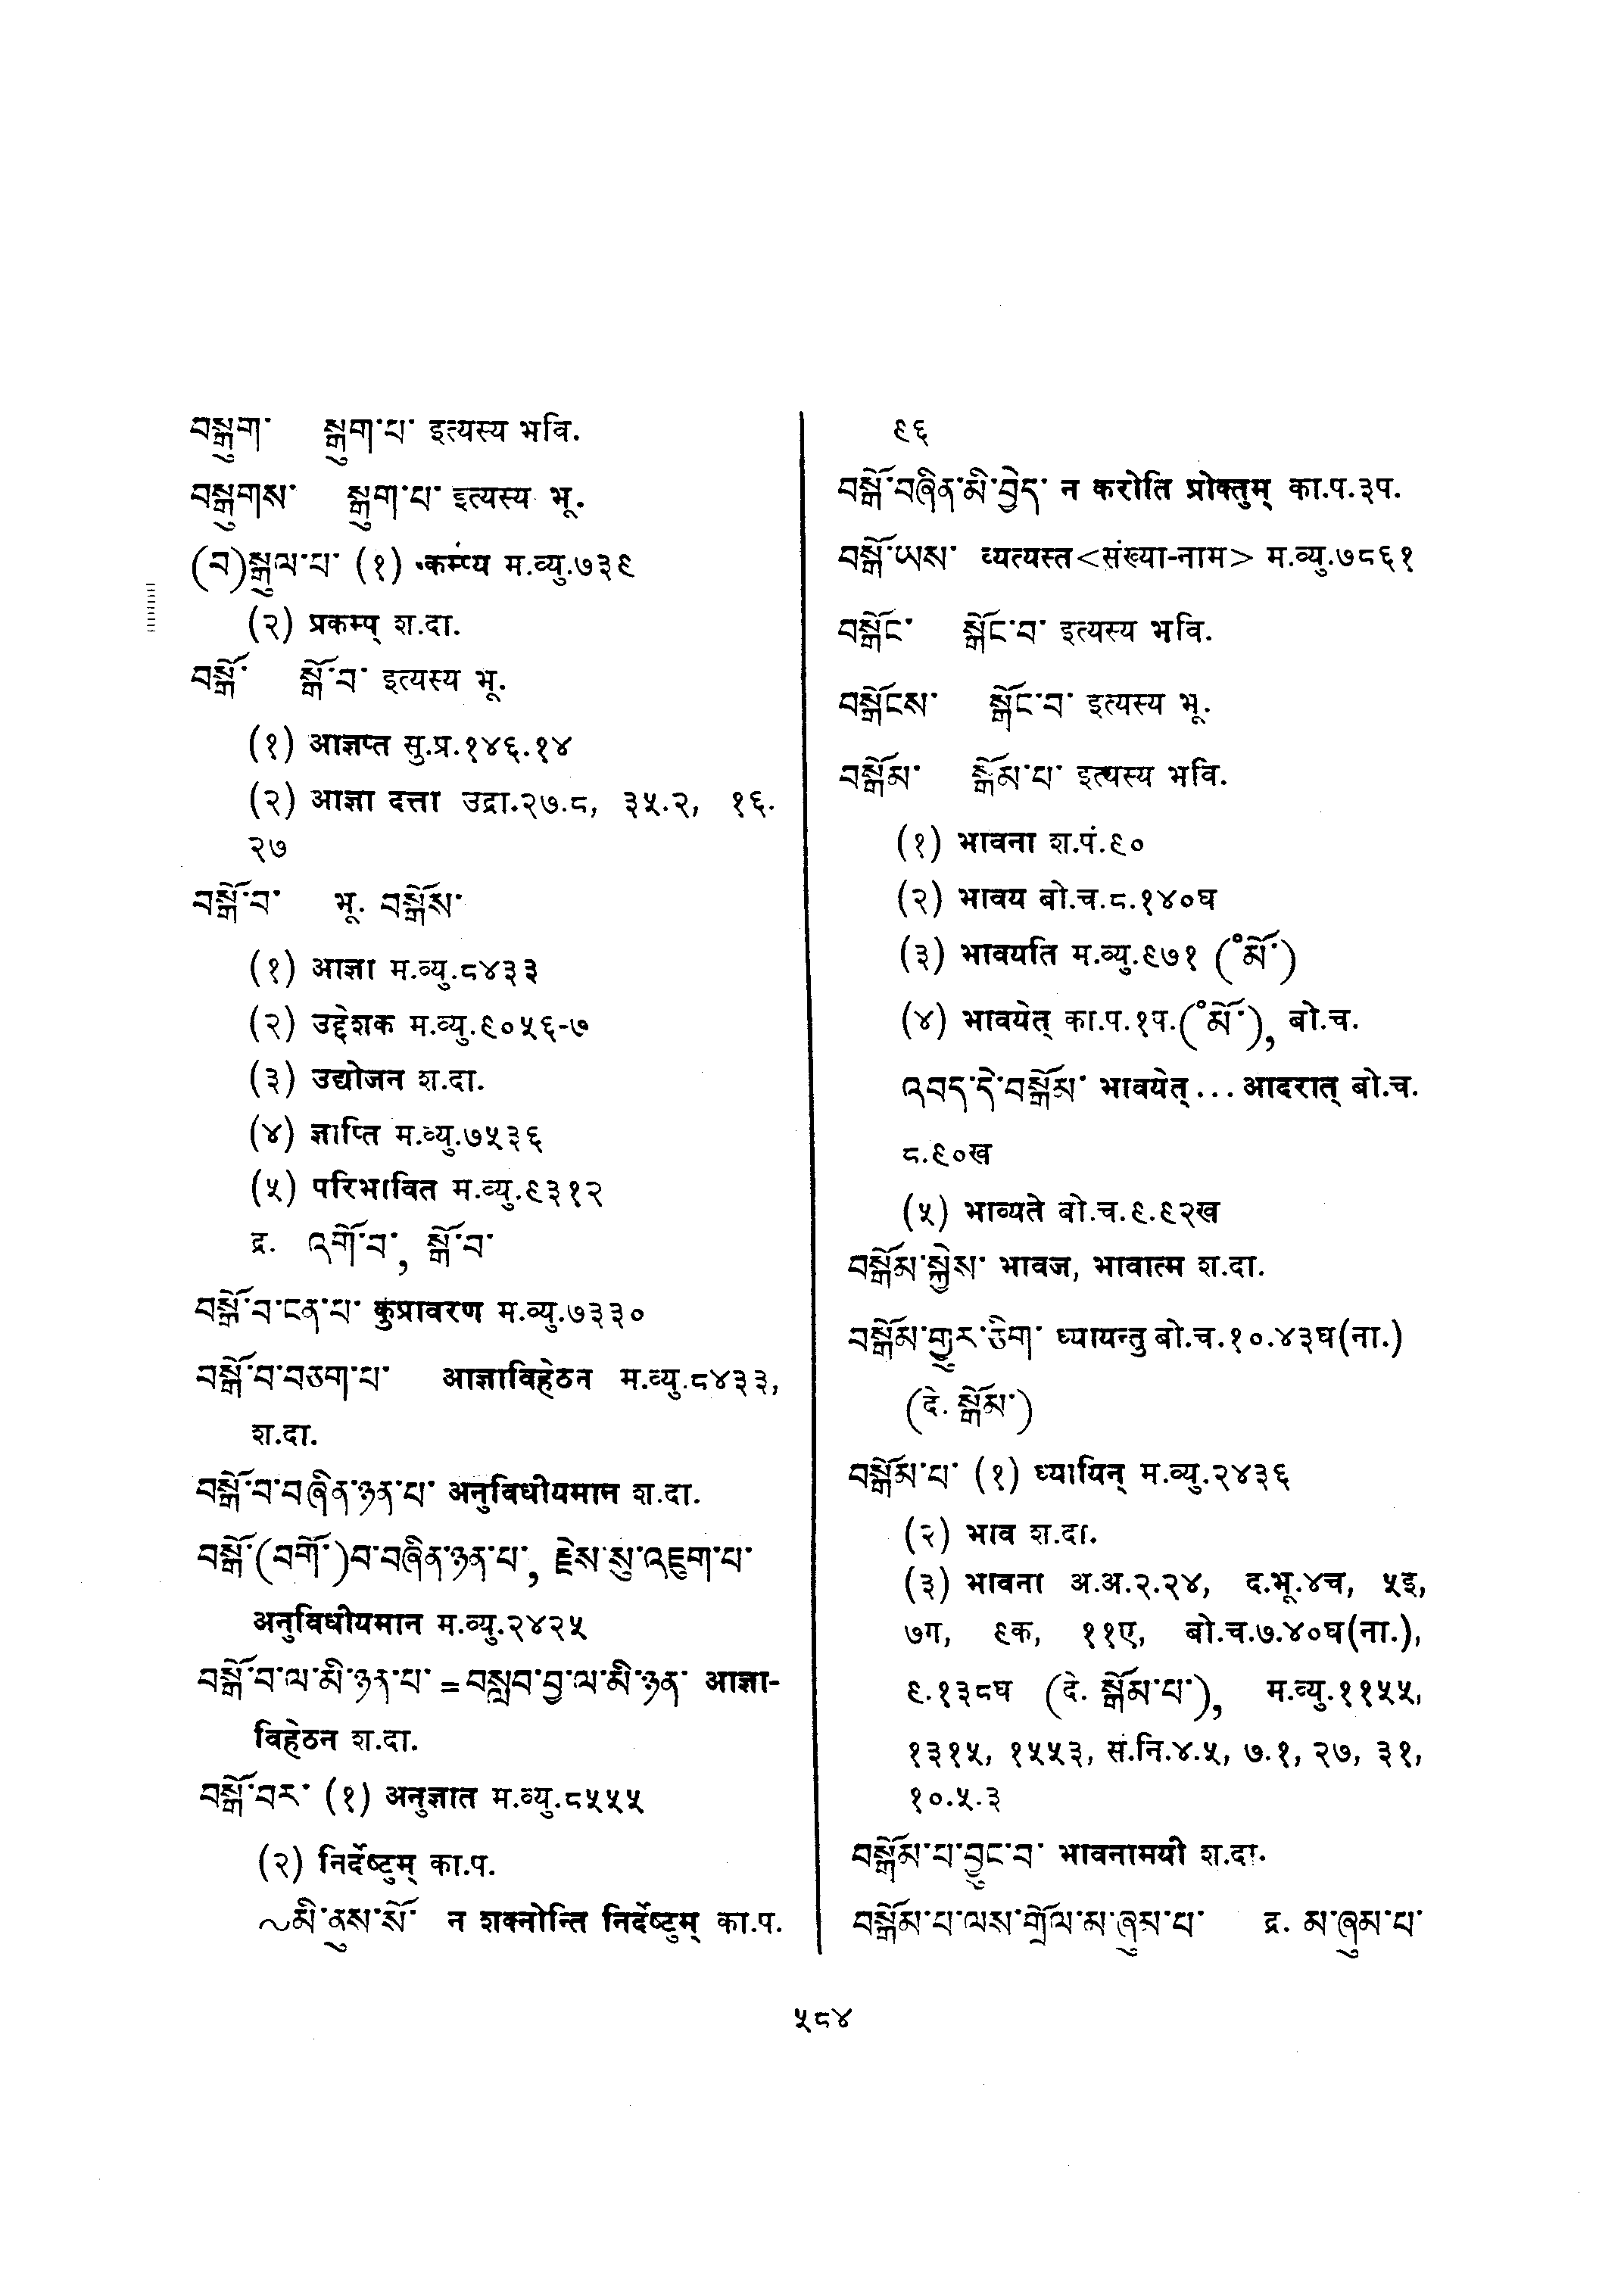 བསྒུག་ སྒུག་པ་ इत्यस्य भवि.
བསྒུགས་ སྒུག་པ་ इत्यस्य भू.
(བ)སྒུལ་པ་ (१) कम्प्य म.व्यु.७३९
(२) प्रकम्प् श.दा.
བསྒོ་ སྒོ་བ་ इत्यस्य भू.
(१) आज्ञप्त सु.प्र.१४६.१४
(२) आज्ञा दत्ता उद्रा.२७.८, ३५.२, १६.
२७
བསྒོ་བ་ भू. བསྒོས་
(१) आज्ञा म.व्यु.८४३३
(२) उद्देशक म.व्यु.९०५६-७
(३) उद्योजन श.दा.
(४) ज्ञाप्ति म.व्यु.७५३६
(५) परिभावित म.व्यु.९३१२
द्र. འགོ་བ་, སྒོ་བ་
བསྒོ་བ་ངན་པ་ कुप्रावरण म.व्यु.७३३०
བསྒོ་བ་བཅག་པ་ आज्ञाविहेठन म.व्यु.८४३३,
श.दा.
བསྒོ་བ་བཞིན་ཉན་པ་ अनुविधीयमान श.दा.
བསྒོ་(བགོ་)བ་བཞིན་ཉན་པ་, རྗེས་སུ་འཇུག་པ་
अनुविधीयमान म.व्यु.२४२५
བསྒོ་བ་ལ་མི་ཉན་པ་ = བསླབ་བྱ་ལ་མི་ཉན་ आज्ञा-
विहेठन श.दा.
བསྒོ་བར་ (१) अनुज्ञात म.व्यु.८५५५
(२) निर्देष्टुम् का.प.
~མི་ནུས་སོ་ न शक्नोन्ति निर्देष्टुम् का.प.
९६
བསྒོ་བཞིན་མི་བྱེད་ न करोति प्रोक्तुम् का.प.३प.
བསྒོ་ཡས་ व्यत्यस्त<संख्या-नाम> म.व्यु.७८६१
བསྒོང་ སྒོང་བ་ इत्यस्य भवि.
བསྒོངས་ སྒོང་བ་ इत्यस्य भू.
བསྒོམ་ སྒོམ་པ་ इत्यस्य भवि.
(१) भावना श.पं.९०
(२) भावय बो.च.८.१४०घ
(३) भावयति म.व्यु.९७१ (°མོ་)
(४) भावयेत् का.प.१प.(°མོ་), बो.च.
འབད་དེ་བསྒོམ་ भावयेत् ... आदरात् बो.च.
८.९०ख
(५) भाव्यते बो.च.९.९२ख
བསྒོམ་སྐྱེས་ भावज, भावात्म श.दा.
བསྒོམ་གྱུར་ཅིག་ ध्यायन्तु बो.च.१०.४३घ(ना.)
(दे. སྒོམ་)
བསྒོམ་པ་ (१) ध्यायिन् म.व्यु.२४३६
(२) भाव श.दा.
(३) भावना अ.अ.२.२४, द.भू.४च, ५इ,
७ग, ९क, ११ए, बो.च.७.४०घ(ना.),
९.१३८घ (दे. སྒོམ་པ་), म.व्यु.११५५,
१३१५, १५५३, सं.नि.४.५, ७.१, २७, ३१,
१०.५.३
བསྒོམ་པ་བྱུང་བ་ भावनामयी श.दा.
བསྒོམ་པ་ལས་གྲོལ་མ་ཞུམ་པ་ द्र. མ་ཞུམ་པ་
५८४